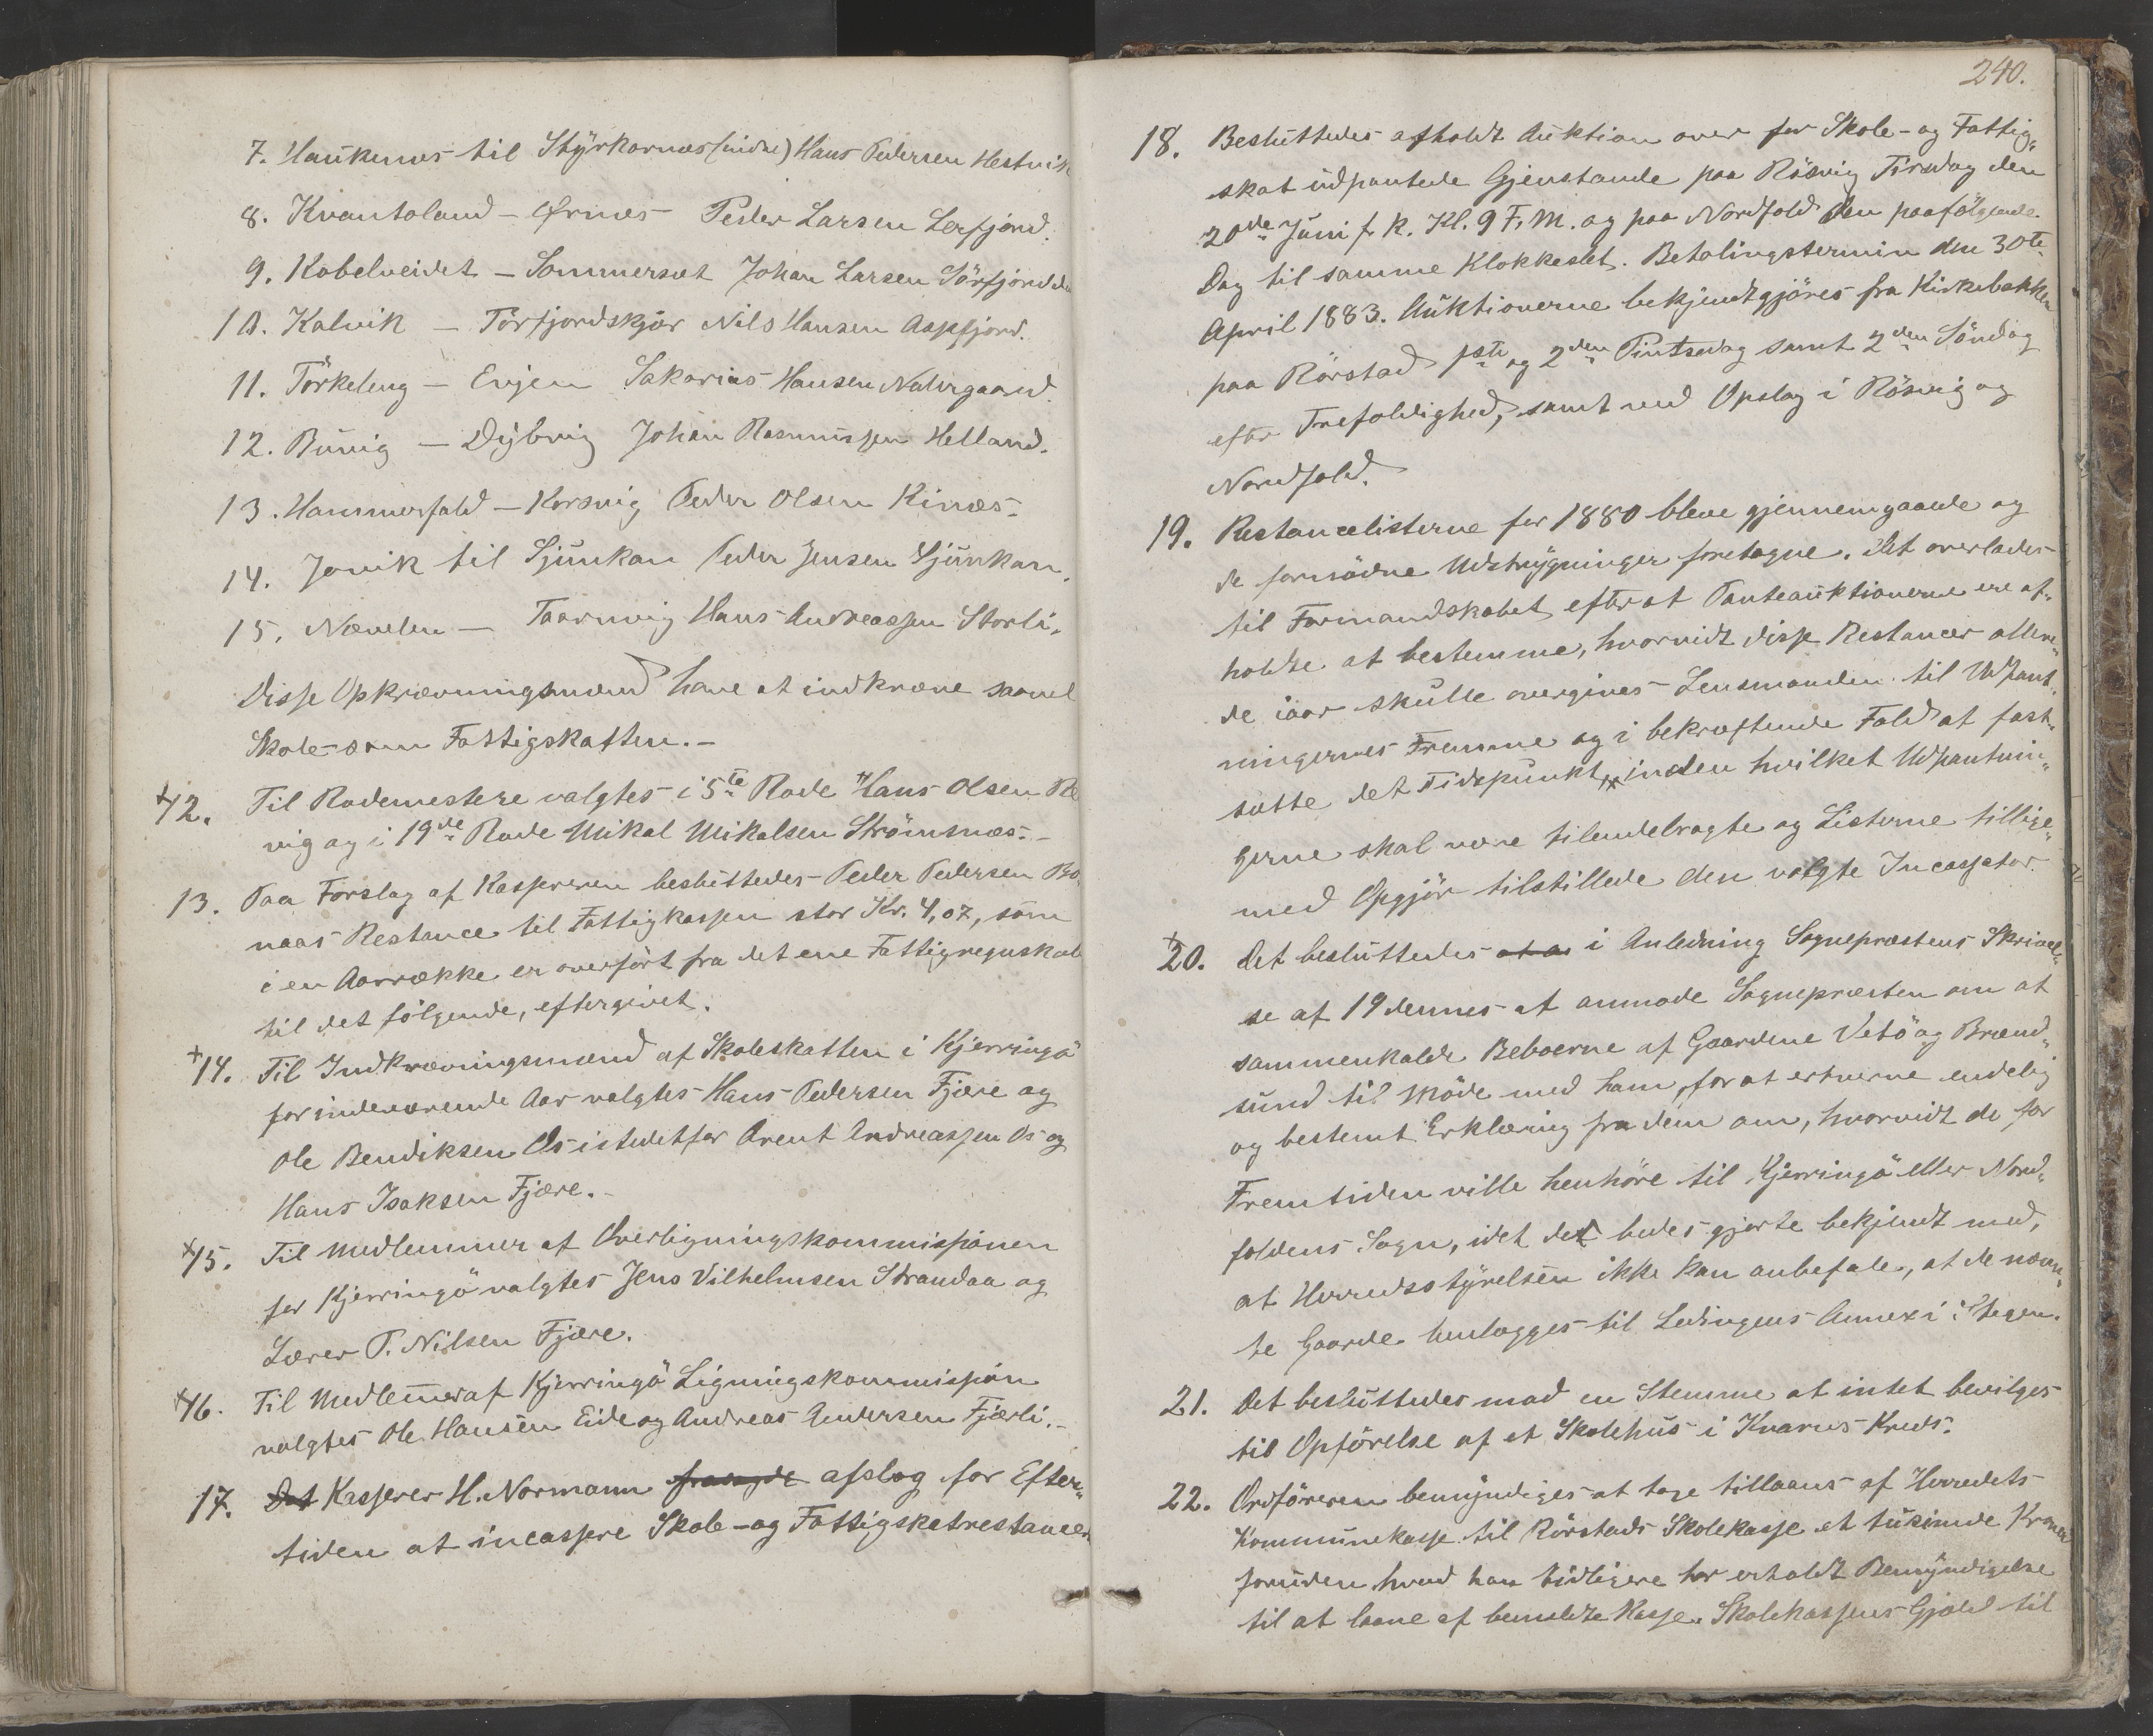 7. Haukenes til Styrkarnes (indre) Hans Pedersen Hestvik
8. Kvantoland - Ørnes - Peder Larsen Lerfjord.
9. Kobelveidet - Sommerset Johan Larsen Sørfjord
10. Kalvik - Tørfjordskjær Nils Hansen Aspfjord.
11. Tørkeleng - Evjen Sakarias Hansen Nedregaard.
12. Buvig - Dybvig Johan Rasmussen Helland.
13. Hammerfald - Korsvig Peder Olsen Kines.
14. Jovik til Sjunkan Peder Jensen Sjunkan.
15. Nævelen - Taarnvig Hans Andreassen Storli.
Disse Opkrævningsmænd have at indkræve saavel
Skole- som Fattigskatten. -
+12. Til Rodemestere valgtes i 5te Rode Hans Olsen Rø
vig og i 19de Rode Mikal Mikalsen Strømsnæs. -
13. Paa Forslag af Kassereren besluttedes Peder Pedersen Bo
naas Restance til Fattigkassen stor Kr. 4,07, som
i en Aarrække er overført fra det ene Fattigregnskab
til det følgende, eftergivet.
+14. Til Indkrævningsmænd af Skoleskatten i Kjerringö
for indeværende Aar valgtes Hans Pedersen Fjære og
Ole Bendiksen Os istedetfor Arent Andreassen Os og
Hans Isaksen Fjære. -
+15. Til Medlemmer af Overligningskommissionen
for Kjerringö valgtes Jens Vilhelmsen Strandaa og
Lærer P. Nilsen Fjære.
+16. Til Medlem̅er af Kjerringö Ligningskommission
valgtes Ole Hansen Eide og Andreas Andersen Fjærli. -
17. Det Kasserer H. Normann fraasgde afslog for Efter„
tiden at incassere Skole- og Fattigskatrestancer
240.
18. Besluttedes afholdt Auktion over for Skole- og Fattig„
skat udpantede Gjenstande paa Rösvig Tirsdag den
20de Juni f. k. Kl. 9 F. M. og paa Nordfold den paafölgende
Dag til samme Klokkeslet. Betalingstermin den 30te
April 1883. Auktionerne bekjendtgjöres fra Kirkebakken
paa Rörstad 1ste og 2den Pintsedag samt 2den Söndag
efter Trefoldighed, samt ved Opslag i Rösvig og
Nordfold.
19. Restancelisterne for 1880 bleve gjennemgaaede og
de fornödne Udstrygninger foretagne. Det overlades
til Formandskabet efterat Panteauktionerne ere af„
holdte at bestemme, hvorvidt disse Restancer allere„
de iaar skulle overgives Lensmanden til Udpant„
ningernes Fremme og i bekræftende Fald at fast„
sætte det Tidspunkt, inden hvilket Udpantnin„
gerne skal være tilendebragte og Listerne tillige„
med Opgjör tilstillede den valgte Incassator.
+20. Det besluttedes at a i Anledning Sognepræstens Skrivel„
se af 19 dennes at anmode Sognepræsten om at
sammenkalde Beboerne af Gaardene Vetö og Brænd„
sund til Möde med ham, for at erhverve endelig
og bestemt Erklæring fra dem om, hvorvidt de for
Fremtiden ville henhöre til Kjerringö eller Nord„
foldens Sogn, idet det bedes gjorte bekjendt med,
at Herredsstyrelsen ikke kan anbefale, at de nævn„
te Gaarde henlægges til Ledingens Annex i Stegen.
21. Det besluttedes mod en Stemme at intet bevilges
til Opförelse af et Skolehus i Kvarnes Kreds.
22. Ordföreren bemyndiges at tage tillaans af Herredets
Kommunekasse til Rörstads Skolekasse et tusinde Kroner
foruden hvad han tidligere har erholdt Bemyndigelse
til at laane af bemeldte Kasse. Skolekassens Gjæld til